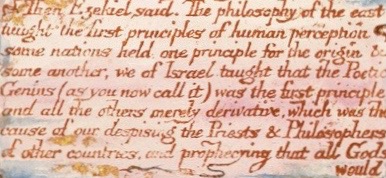 Then Ezekiel said. The philosophy of the east
taught the first principles of human perception
some nations held one principle for the origin &
some another, we of Israel taught that the Poetic
Genius (as you now call it) was the first principle
and all the others merely derivative, which was the
cause of our despising the Priests & Philosophers
of other countries, and prophecying that all Gods
would